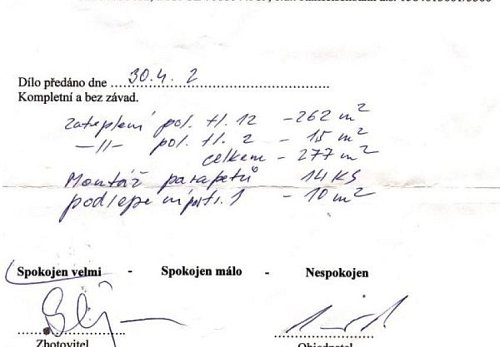 Dílo předáno dne 30.4. 2
Kompletní a bez závad.
Zateplení pol. tl. 12 - 262 m²
-11- pol. tl. 2 - 15 m²
celkem - 277 m²
Montáž parapetů 14 KS
podlepení tl. 1 - 10 m²
Spokojen velmi - Spokojen málo - Nespokojen
Zhotovitel Objednatel